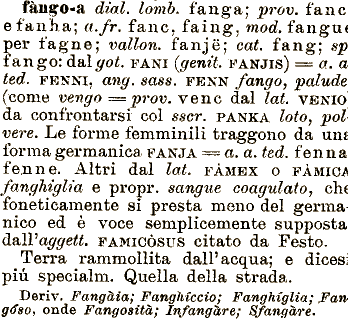 fàngo-a dial. lomb. fanga; prov. fanc
e fanha; a.fr. fanc, faing, mod. fangue
per fagne; vallon. fanjë; cat. fang; sp
fango: dal got. FANI (genit. FANJIS) = a. a
ted. FENNI, ang. sass. FENN fango, palude
(come vengo = prov. venc dal lat. VENIO
da confrontarsi col sscr. PANKA loto, pol-
vere. Le forme femminili traggono da una
forma germanica FANJA = a. a. ted. fenna
fenne. Altri dal lat. FÀMEX o FÀMICA
fanghiglia e propr. sangue coagulato, che
foneticamente si presta meno del germa-
nico ed è voce semplicemente supposta
dall'aggett. FAMICÒSUS citato da Festo.
Terra rammollita dall'acqua; e dicesi
piú specialm. Quella della strada.
Deriv. Fangàia; Fanghíccio; Fanghíglia; Fan-
góso, onde Fangosità; Infangàre; Sfangàre.